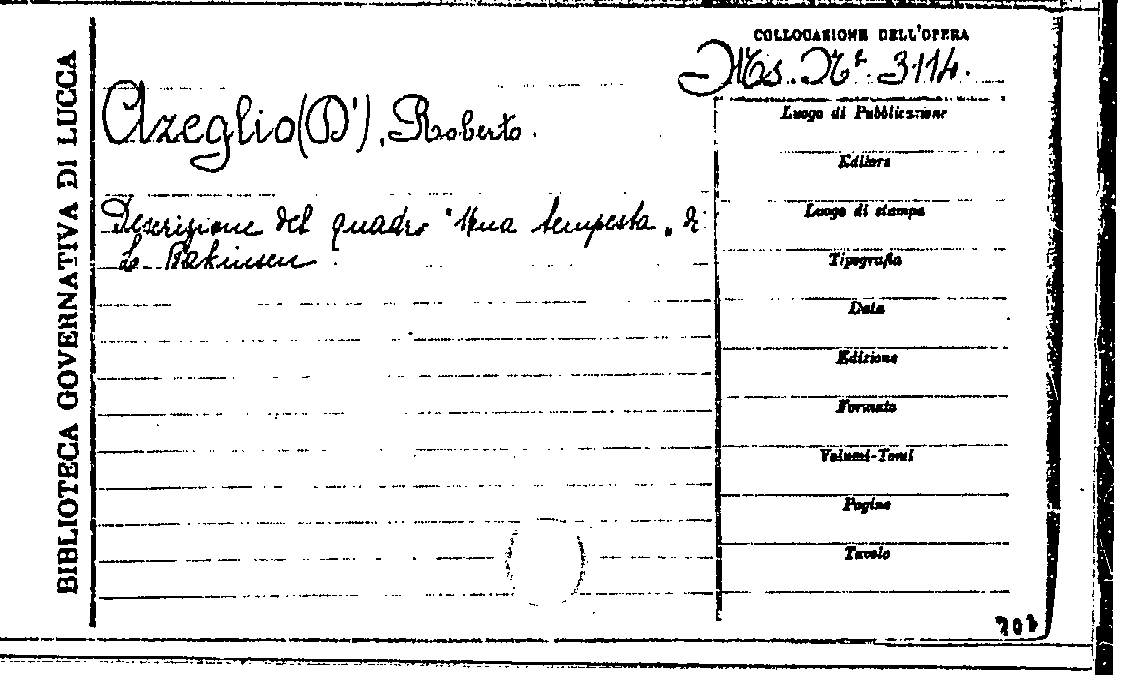 BIBLIOTECA GOVERNATIVA DI LUCCA
COLLOCAZIONE DELL'OPERA
Ms. Nº 3114.
Azeglio (D'), Roberto.
Descrizione del quadro "Una tempesta" di
L. Bakinsen
Luogo di Pubblicazione
Editore
Luogo di stampa
Tipografia
Data
Edizione
Formato
Volumi-Tomi
Pagine
Tavole